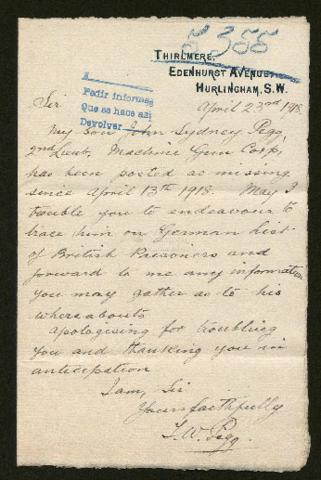 5355
THIRLMERE,
EDENHURST AVENUE,
HURLINGHAM, S.W.
April 23rd 1918
Pedir informes
Que se hace así
Devolver
Sir
My son John Sydney Pegg,
2nd Lieut. Machine Gun Corps,
has been posted as missing
since April 13th 1918. May I
trouble you to endeavour to
trace him on German list
of British Prisoners and
forward to me any information
you may gather as to his
whereabouts
Apologising for troubling
you and thanking you in
anticipation
I am, Sir
Yours faithfully
T. W. Pegg.